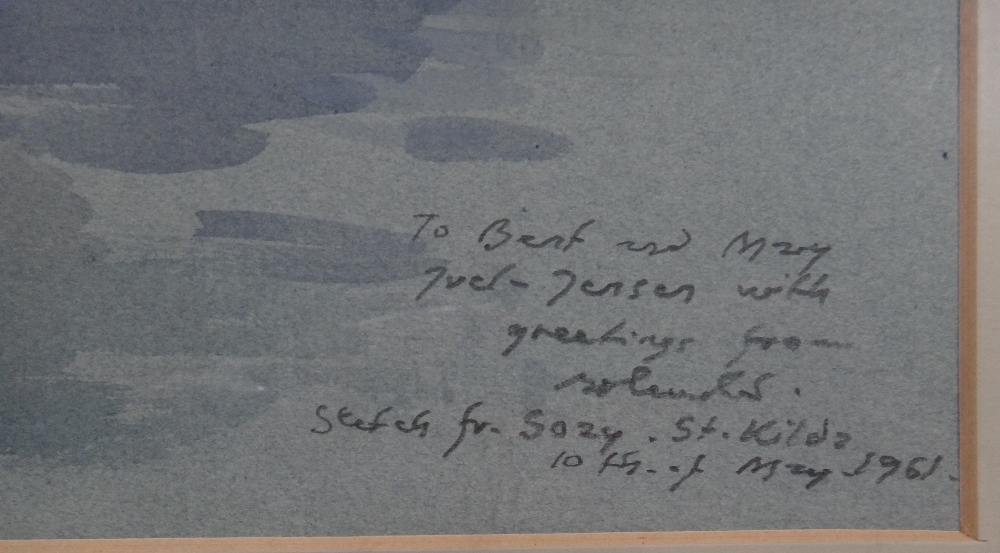 To Bent and Mary
Juel-Jensen with
greetings from
Rolando.
Sketch fr. Soay. St. Kilda
10th. of May 1961.